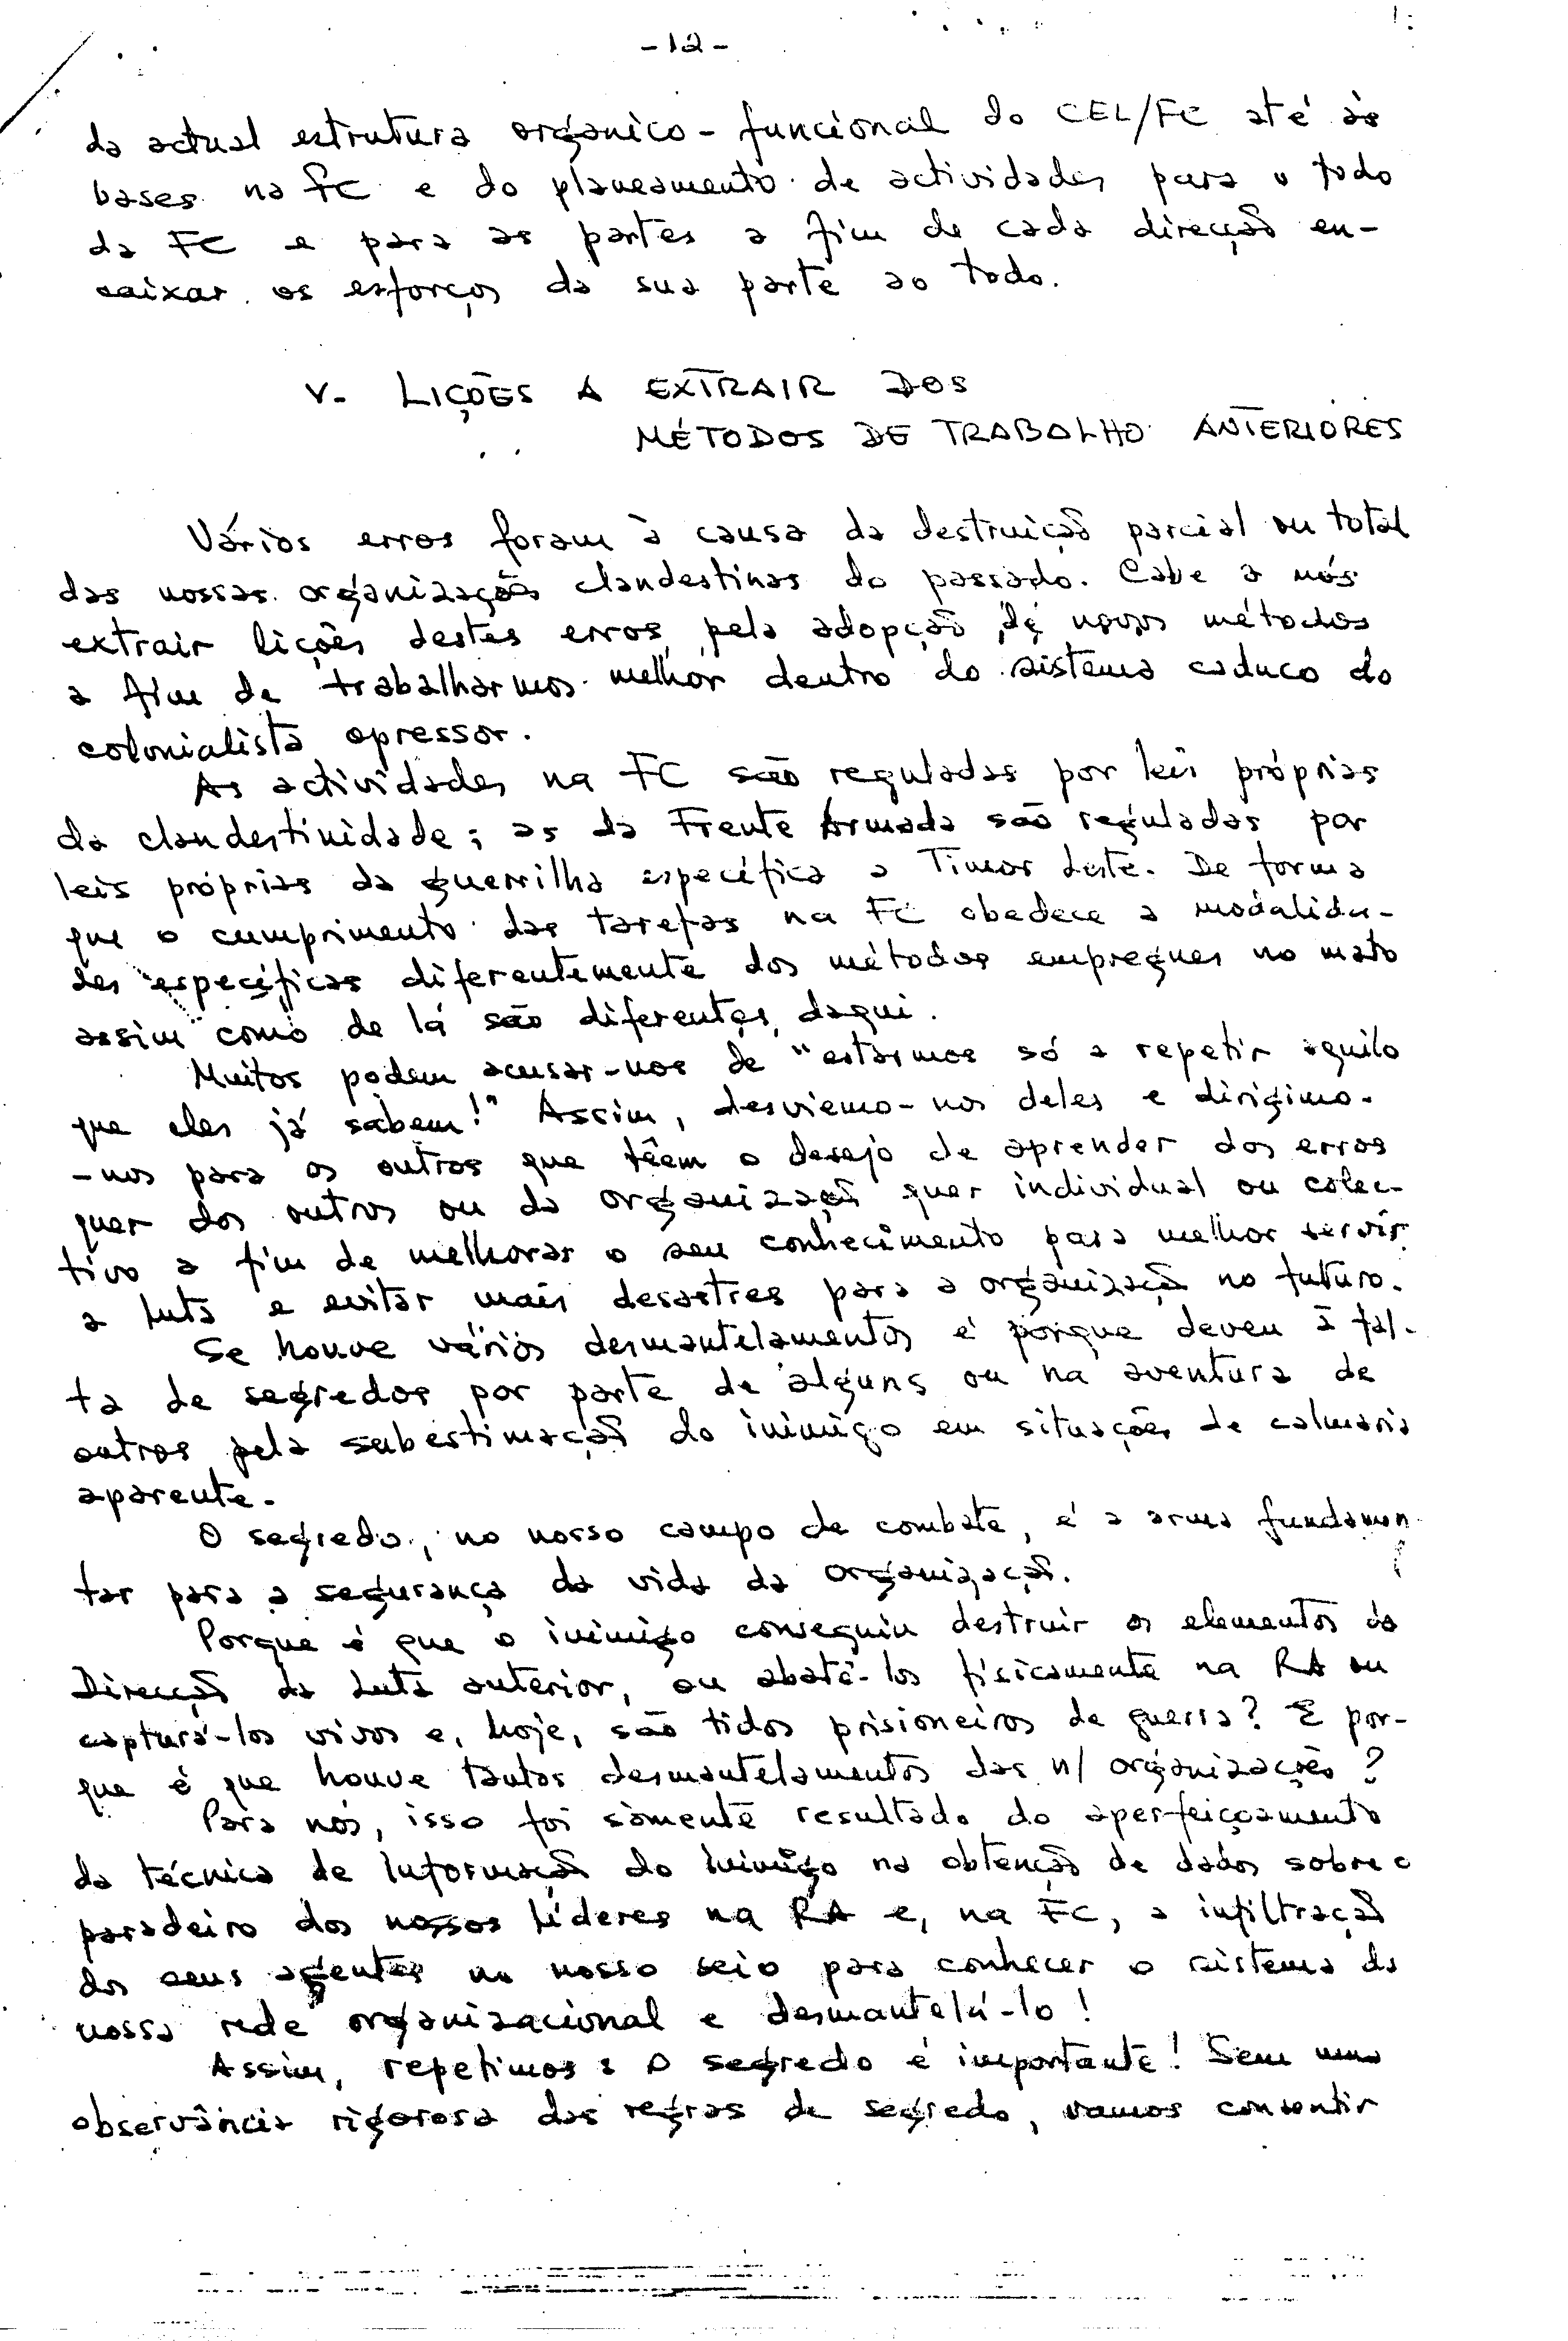 -12-
da actual estrutura orgânico-funcional do CEL/FC até às
bases na FC e do planeamento de actividades para o todo
da FC e para as partes a fim de cada direcção en-
caixar os esforços da sua parte ao todo.
V- LIÇÕES A EXTRAIR DOS
MÉTODOS DE TRABALHO ANTERIORES
Vários erros foram à causa da destruição parcial ou total
das nossas organizações clandestinas do passado. Cabe a nós
extrair lições destes erros pela adopção de novos métodos
a fim de trabalharmos melhor dentro do sistema caduco do
colonialista opressor.
As actividades na FC são reguladas por leis próprias
da clandestinidade; as da Frente Armada são reguladas por
leis próprias da guerrilha específica a Timor Leste. De forma
que o cumprimento das tarefas na FC obedece a modalida-
des específicas diferentemente dos métodos empregues no mato
assim como de lá são diferentes daqui.
Muitos podem acusar-nos de "estarmos só a repetir aquilo
que eles já sabem!" Assim, desviemo-nos deles e dirigimo-
-nos para os outros que têem o desejo de aprender dos erros
quer dos outros ou da organização quer individual ou colec-
tivo a fim de melhorar o seu conhecimento para melhor servir
a Luta e evitar mais desastres para a organização no futuro.
Se houve vários desmantelamentos é porque deveu à fal-
ta de segredos por parte de alguns ou na aventura de
outros pela subestimação do inimigo em situações de calmaria
aparente.
O segredo, no nosso campo de combate, é a arma fundamen
tar para a segurança da vida da organização.
Porque é que o inimigo conseguiu destruir os elementos da
Direcção da Luta anterior, ou abatê-los físicamente na RA ou
capturá-los vivos e, hoje, são tidos prisioneiros de guerra? E por-
que é que houve tantos desmantelamentos das n/ organizações?
Para nós, isso foi sòmente resultado do aperfeiçoamento
da técnica de Informação do Inimigo na obtenção de dados sobre o
paradeiro dos nossos Líderes na RA e, na FC, a infiltração
dos seus agentes no nosso seio para conhecer o sistema da
nossa rede organizacional e desmantelá-lo!
Assim, repetimos: O segredo é importante! Sem uma
observância rigorosa das regras de segredo, vamos consentir